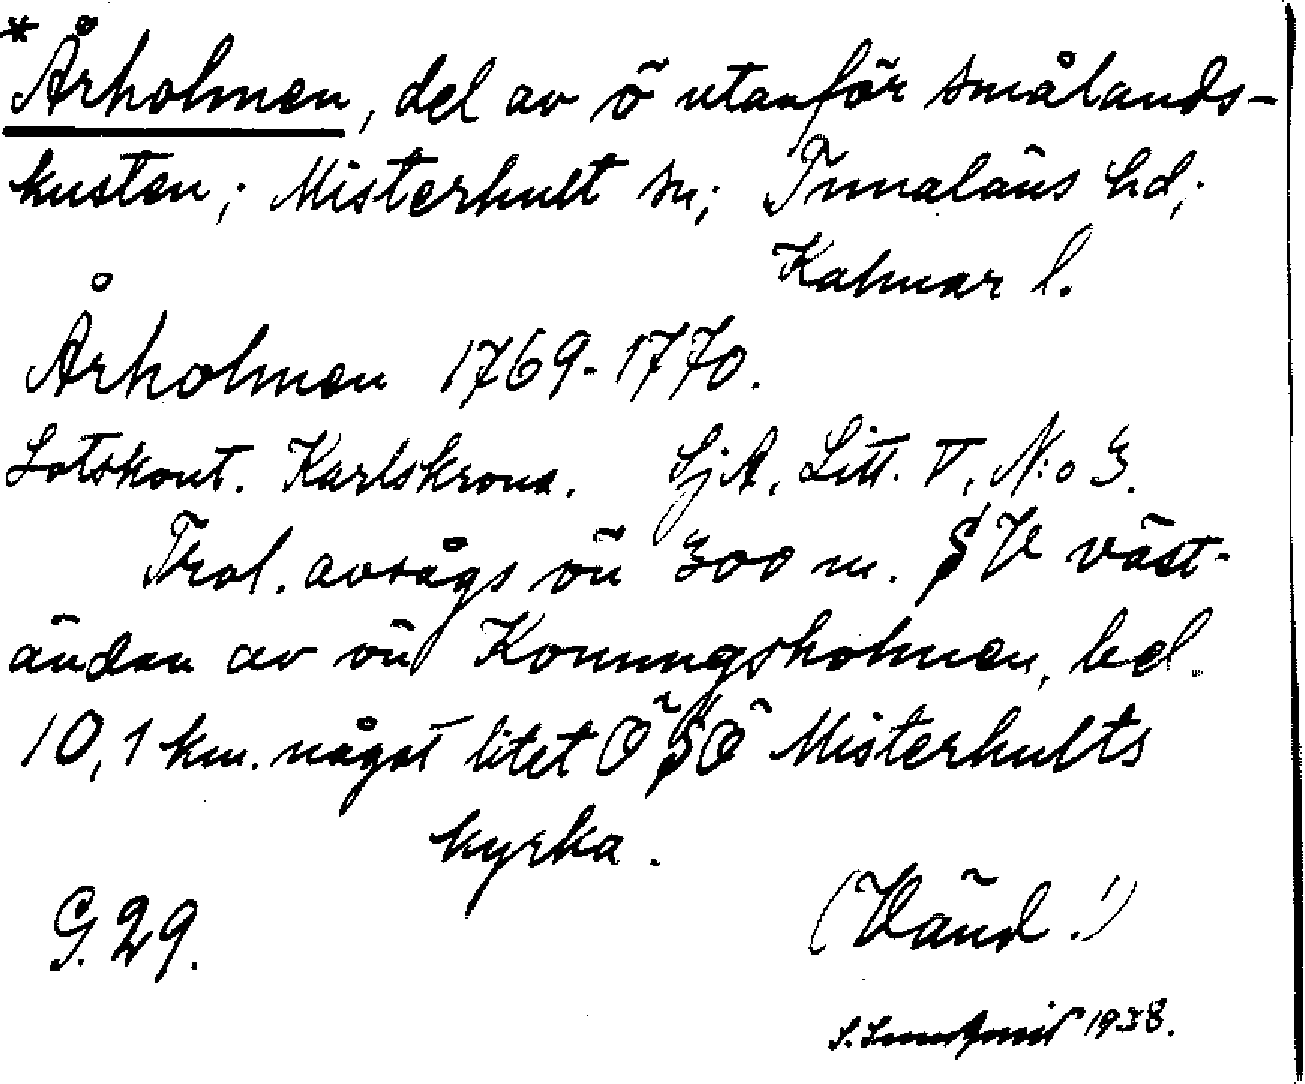 *Årholmen, del av ö utanför smålands-
kusten; Misterhult sn; Tunaläns hd;
Kalmar l.
Årholmen 1769-1770.
Lotskont. Karlskrona. SjA, Litt. V, N:o 3.
Trol. avsågs ön 300 m. SV väst-
ändan av ön Konungsholmen, bel.
10,1 km. något litet Ö SÖ Misterhults
kyrka.
G. 29. (Vänd!)
1938.